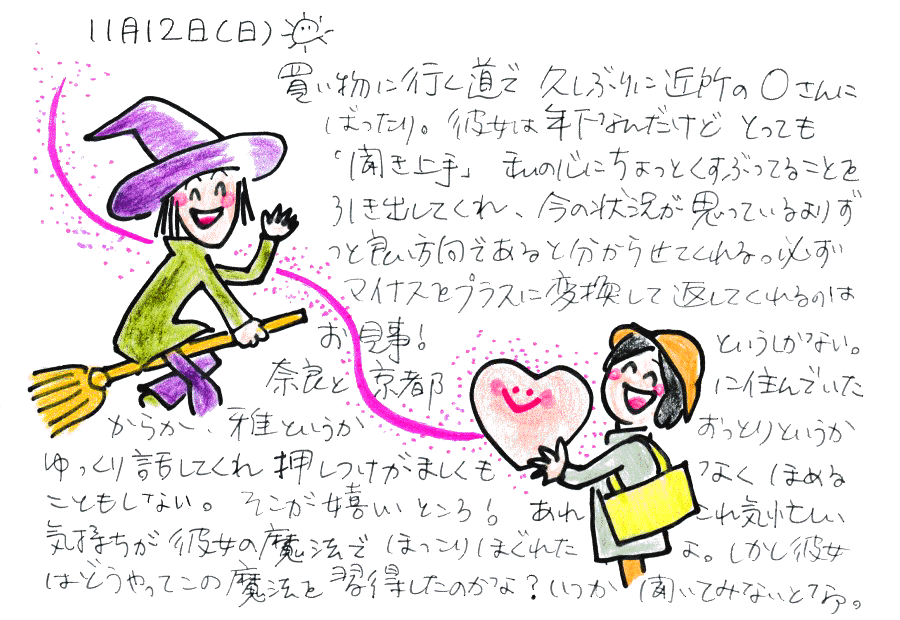 11月12日(日)
買い物に行く道で 久しぶりに近所のOさんに
ばったり。彼女は年下なんだけど とっても
「聞き上手」 私の心にちょっとくすぶってることを
引き出してくれ、今の状況が思っているよりず
っと良い方向であると分からせてくれる。必ず
マイナスをプラスに変換して返してくれるのは
お見事! というしかない。
奈良と京都 に住んでいた
からか、雅というか おっとりというか
ゆっくり話してくれ 押しつけがましくも なく ほめる
こともしない。そこが嬉しいところ! あれ これ気忙しい
気持ちが彼女の魔法で ほっこりほぐれた よ。しかし彼女
はどうやってこの魔法を習得したのかな?いつか 聞いてみないとね。